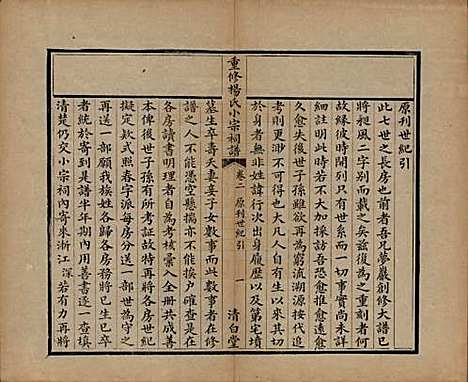 原刊世紀引
此七世之長房也前者吾兄夢巖創修大譜已
將昶風二字別而載之矣茲後為之重刻者何
故緣彼時開列只有若干不大加一切事實尚未詳
細註明若至此而不再為考核探訪吾恐愈推愈遠愈
久愈失後世子孫雖欲再為窮流溯源按代追
考則更渺不可得也大凡人自有生以來其終
於身者無非姓諱行次出身履歷以及第宅墳
重修楊氏小宗祠譜
卷二 原刊世紀引
一
清白堂
墓生卒壽夭妻妾子女數事而此數事者在修
譜之人不能盡人而知之亦不能挨户確查是在
各房讀書明理者自為考核彙入全册共成善
本俾後世子孫有所考証故今再將各房世紀
擬定欵式照春字派每房分送一部世為守之
再送一部願我族各房務將已之世系已之事
者統於寄到是譜半年期內用善書逐一查填
清楚仍交小宗祠內寄來浙江 深若有力再將